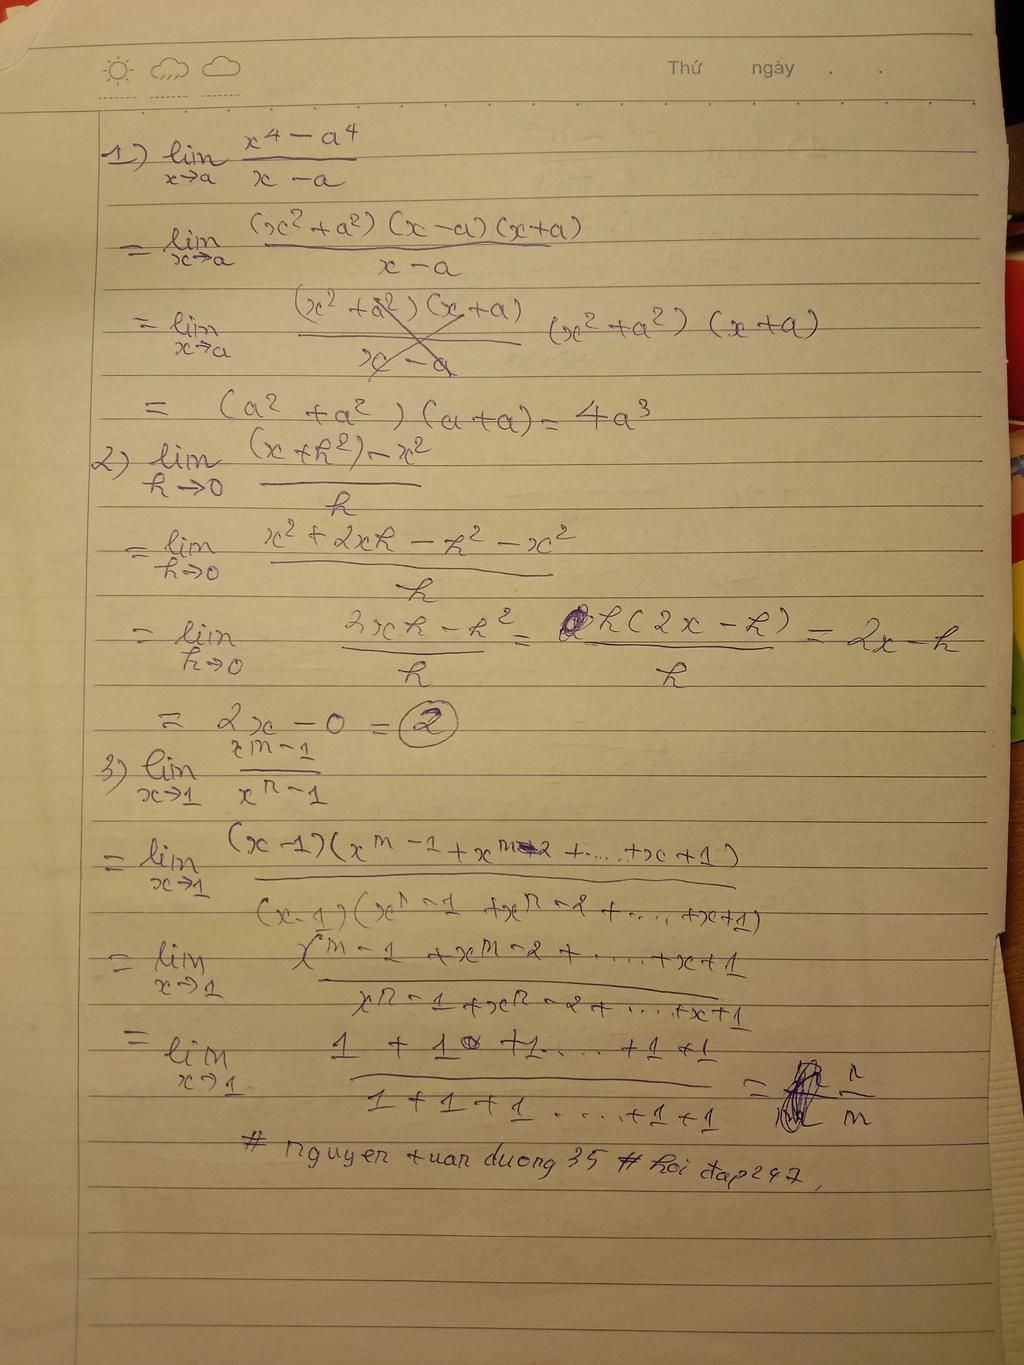 Thứ ngày . .
1) lim x→a (x⁴ - a⁴)/(x - a)
= lim x→a ((x² + a²) (x - a) (x + a))/(x - a)
= lim x→a ((x² + a²) (x + a))/(x - a) (x² + a²) (x + a)
= (a² + a²) (a + a) = 4a³
2) lim h→0 ((x + h²) - x²)/h
= lim h→0 (x² + 2xh - h² - x²)/h
= lim h→0 (2xh - h²)/h = h(2x - h)/h = 2x - h
= 2x - 0 = 2
3) lim x→1 (xᵐ - 1)/(xⁿ - 1)
= lim x→1 ((x - 1)(xᵐ - 1 + xᵐ - 2 + .... + x + 1))/((x - 1)(xⁿ - 1 + xⁿ - 2 + .... + x + 1))
= lim x→1 (xᵐ - 1 + xᵐ - 2 + ..... + x + 1)/(xⁿ - 1 + xⁿ - 2 + .... + x + 1)
= lim x→1 (1 + 1 + 1..... + 1 + 1)/(1 + 1 + 1 ..... + 1 + 1) = n/m
# nguyen tuan duong 35 # hoi đap 247,